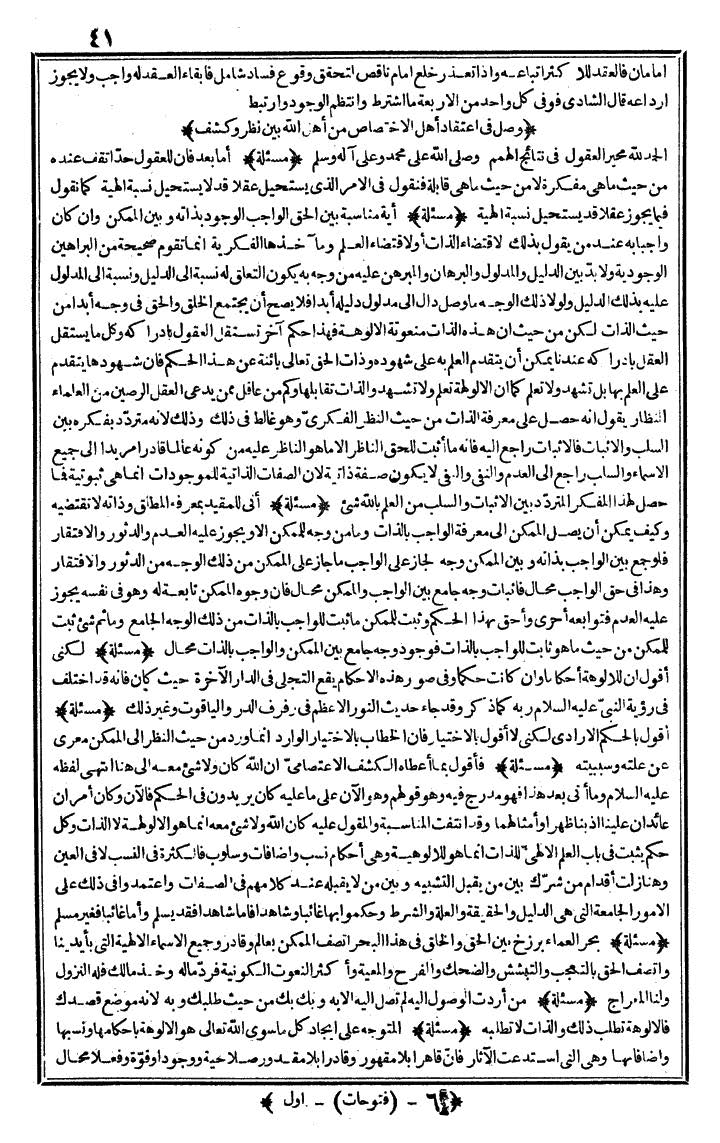 ٤١
امامان فالعقد للاكثر اتباعه واذا تعذر خلع امام ناقص لتحقق وقوع فساد شامل فابقاء العقد له واجب ولا يجوز
ارداعه قال الشادى فوفى كل واحد من الاربعة ما اشترط وانتظم الوجود وارتبط
﴿وصل فى اعتقاد أهل الاختصاص من أهل الله بين نظر وكشف﴾
الحمد لله محير العقول فى نتائج الهمم وصلى الله على محمد وعلى آله وسلم ﴿مسئلة﴾ أما بعد فان للعقول حدا تقف عنده
من حيث ماهى مفكرة لا من حيث ماهى قابلة فنقول فى الامر الذى يستحيل عقلا قد لا يستحيل نسبة الهية كما نقول
فيما يجوز عقلا قد يستحيل نسبة الهية ﴿مسئلة﴾ أية مناسبة بين الحق الواجب الوجود بذاته وبين الممكن وان كان
واجبا به عند من يقول بذلك لاقتضاء الذات أو لاقتضاء العلم ومآخذها الفكرية انما تقوم صحيحة من البراهين
الوجودية ولا بد بين الدليل والمدلول والبرهان والمبرهن عليه من وجه به يكون التعلق له نسبة الى الدليل ونسبة الى المدلول
عليه بذلك الدليل ولولا ذلك الوجه ما وصل دال الى مدلول دليله أبدا فلا يصح أن يجتمع الخلق والحق فى وجه أبدا من
حيث الذات لكن من حيث ان هذه الذات منعوتة الالوهة فهذا حكم آخر تستقل العقول بادراكه وكل ما يستقل
العقل بادراكه عندنا يمكن أن يتقدم العلم به على شهوده وذات الحق تعالى بائنة عن هذا الحكم فان شهودها يتقدم
على العلم بها بل تشهد ولا تعلم كما ان الالوهة تعلم ولا تشهد والذات تقابلها وكم من عاقل ممن يدعى العقل الرصين من العلماء
النظار يقول انه حصل على معرفة الذات من حيث النظر الفكرى وهو غالط فى ذلك وذلك لانه متردد بفكره بين
السلب والاثبات فالاثبات راجع اليه فانه ما أثبت للحق الناظر الا ماهو الناظر عليه من كونه عالما قادرا مريدا الى جميع
الاسماء والسلب راجع الى العدم والنفى والنفى لا يكون صفة ذاتية لان الصفات الذاتية للموجودات انما هى ثبوتية فما
حصل لهذا المفكر المتردد بين الاثبات والسلب من العلم بالله شئ ﴿مسئلة﴾ أنى للمقيد بمعرفة المطلق وذاته لا تقتضيه
وكيف يمكن أن يصل الممكن الى معرفة الواجب بالذات وما من وجه للممكن الا ويجوز عليه العدم والدثور والافتقار
فلو جمع بين الواجب بذاته وبين الممكن وجه لجاز على الواجب ماجاز على الممكن من ذلك الوجه من الدثور والافتقار
وهذا فى حق الواجب محال فاثبات وجه جامع بين الواجب والممكن محال فان وجوه الممكن تابعة له وهو فى نفسه يجوز
عليه العدم فتوابعه أحرى وأحق بهذا الحكم وثبت للممكن ماثبت للواجب بالذات من ذلك الوجه الجامع وما ثم شئ ثبت
للممكن من حيث ماهو ثابت للواجب بالذات فوجود وجه جامع بين الممكن والواجب بالذات محال ﴿مسئلة﴾ لكنى
أقول ان للالوهة أحكاما وان كانت حكما وفى صور هذه الاحكام يقع التجلى فى الدار الآخرة حيث كان فانه قد اختلف
فى رؤية النبى عليه السلام ربه كما ذكر وقد جاء حديث النور الاعظم فى رفرف الدر والياقوت وغير ذلك ﴿مسئلة﴾
أقول بالحكم الارادى لكنى لا أقول بالاختيار فان الخطاب بالاختيار الوارد انما ورد من حيث النظر الى الممكن معرى
عن علته وسببيته ﴿مسئلة﴾ فأقول بما أعطاه الكشف الاعتصامى ان الله كان ولا شئ معه الى هنا انتهى لفظه
عليه السلام وما أتى بعد هذا فهو مدرج فيه وهو قولهم وهو الآن على ما عليه كان يريدون فى الحكم فالآن وكان أمران
عائدان علينا اذ بنا ظهرا وأمثالهما وقد انتفت المناسبة والمقول عليه كان الله ولا شئ معه انما هو الالوهة لا الذات وكل
حكم يثبت فى باب العلم الالهى للذات انما هو للالوهية وهى أحكام نسب واضافات وسلوب فالكثرة فى النسب لا فى العين
وهنا زلت أقدام من شرك بين من يقبل التشبيه وبين من لا يقبله عند كلامهم فى الصفات واعتمدوا فى ذلك على
الامور الجامعة التى هى الدليل والحقيقة والعلة والشرط وحكموا بها غائبا وشاهدا فاما شاهدا فقد يسلم وأما غائبا فغير مسلم
﴿مسئلة﴾ بحر العماء برزخ بين الحق والخلق فى هذا البحر اتصف الممكن بعالم وقادر وجميع الاسماء الالهية التى بأيدينا
واتصف الحق بالتعجب والتبشش والضحك والفرح والمعية وأكثر النعوت الكونية فرد ماله وخذ مالك فله النزول
ولنا المعراج ﴿مسئلة﴾ من أردت الوصول اليه لم تصل اليه الا به وبك بك من حيث طلبك وبه لانه موضع قصدك
فالالوهة تطلب ذلك والذات لا تطلبه ﴿مسئلة﴾ المتوجه على ايجاد كل ما سوى الله تعالى هو الالوهة باحكامها ونسبها
واضافاتها وهى التى استدعت الآثار فان قاهرا بلا مقهور وقادرا بلا مقدور صلاحية ووجودا وقوة وفعلا محال
﴿٦ - (فتوحات) - اول﴾